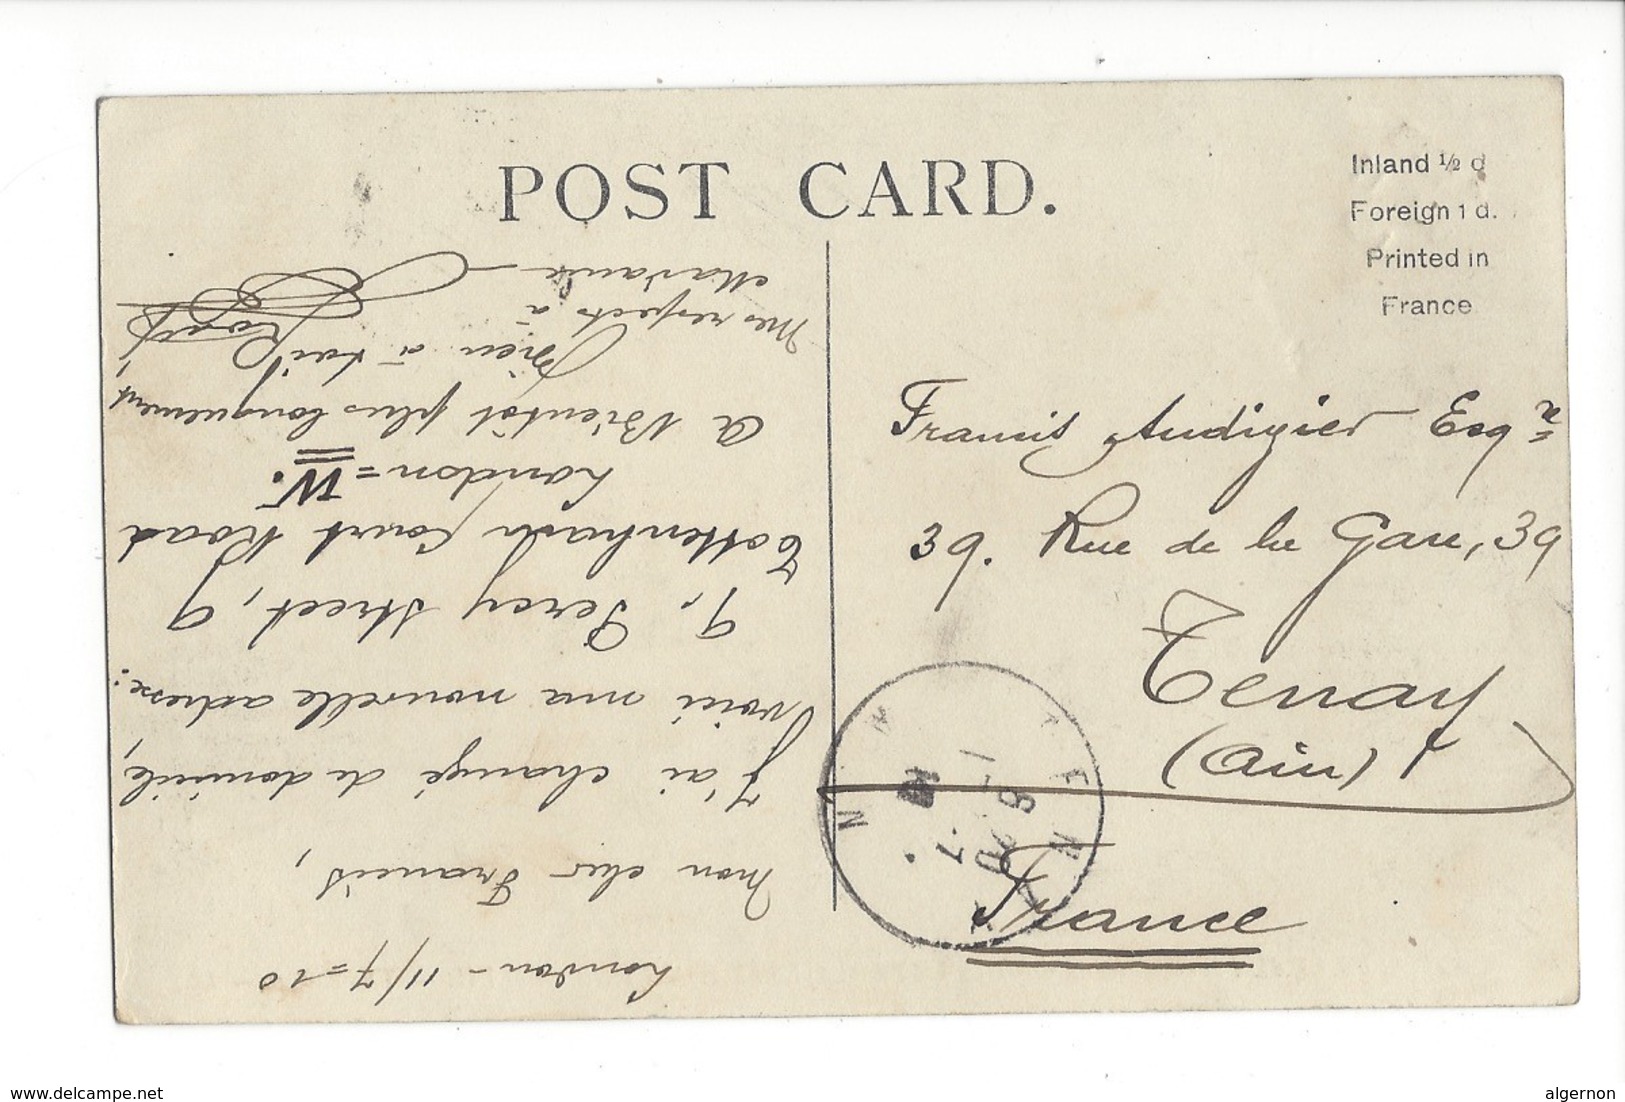 POST CARD.
Inland ½ d
Foreign 1 d.
Printed in
France
London - 11/7=10
Mon cher Francis,
J'ai changé de domicile,
voici ma nouvelle adresse:
9, Percy Street, 9
Tottenham Court Road
London = W.
A Bientôt plus longuement,
Bien à toi
Mes respects à
Madame
Francis Audigier Esqre
39. Rue de la Gare, 39
Tenay
(Ain)
France
www.delcampe.net
algernon